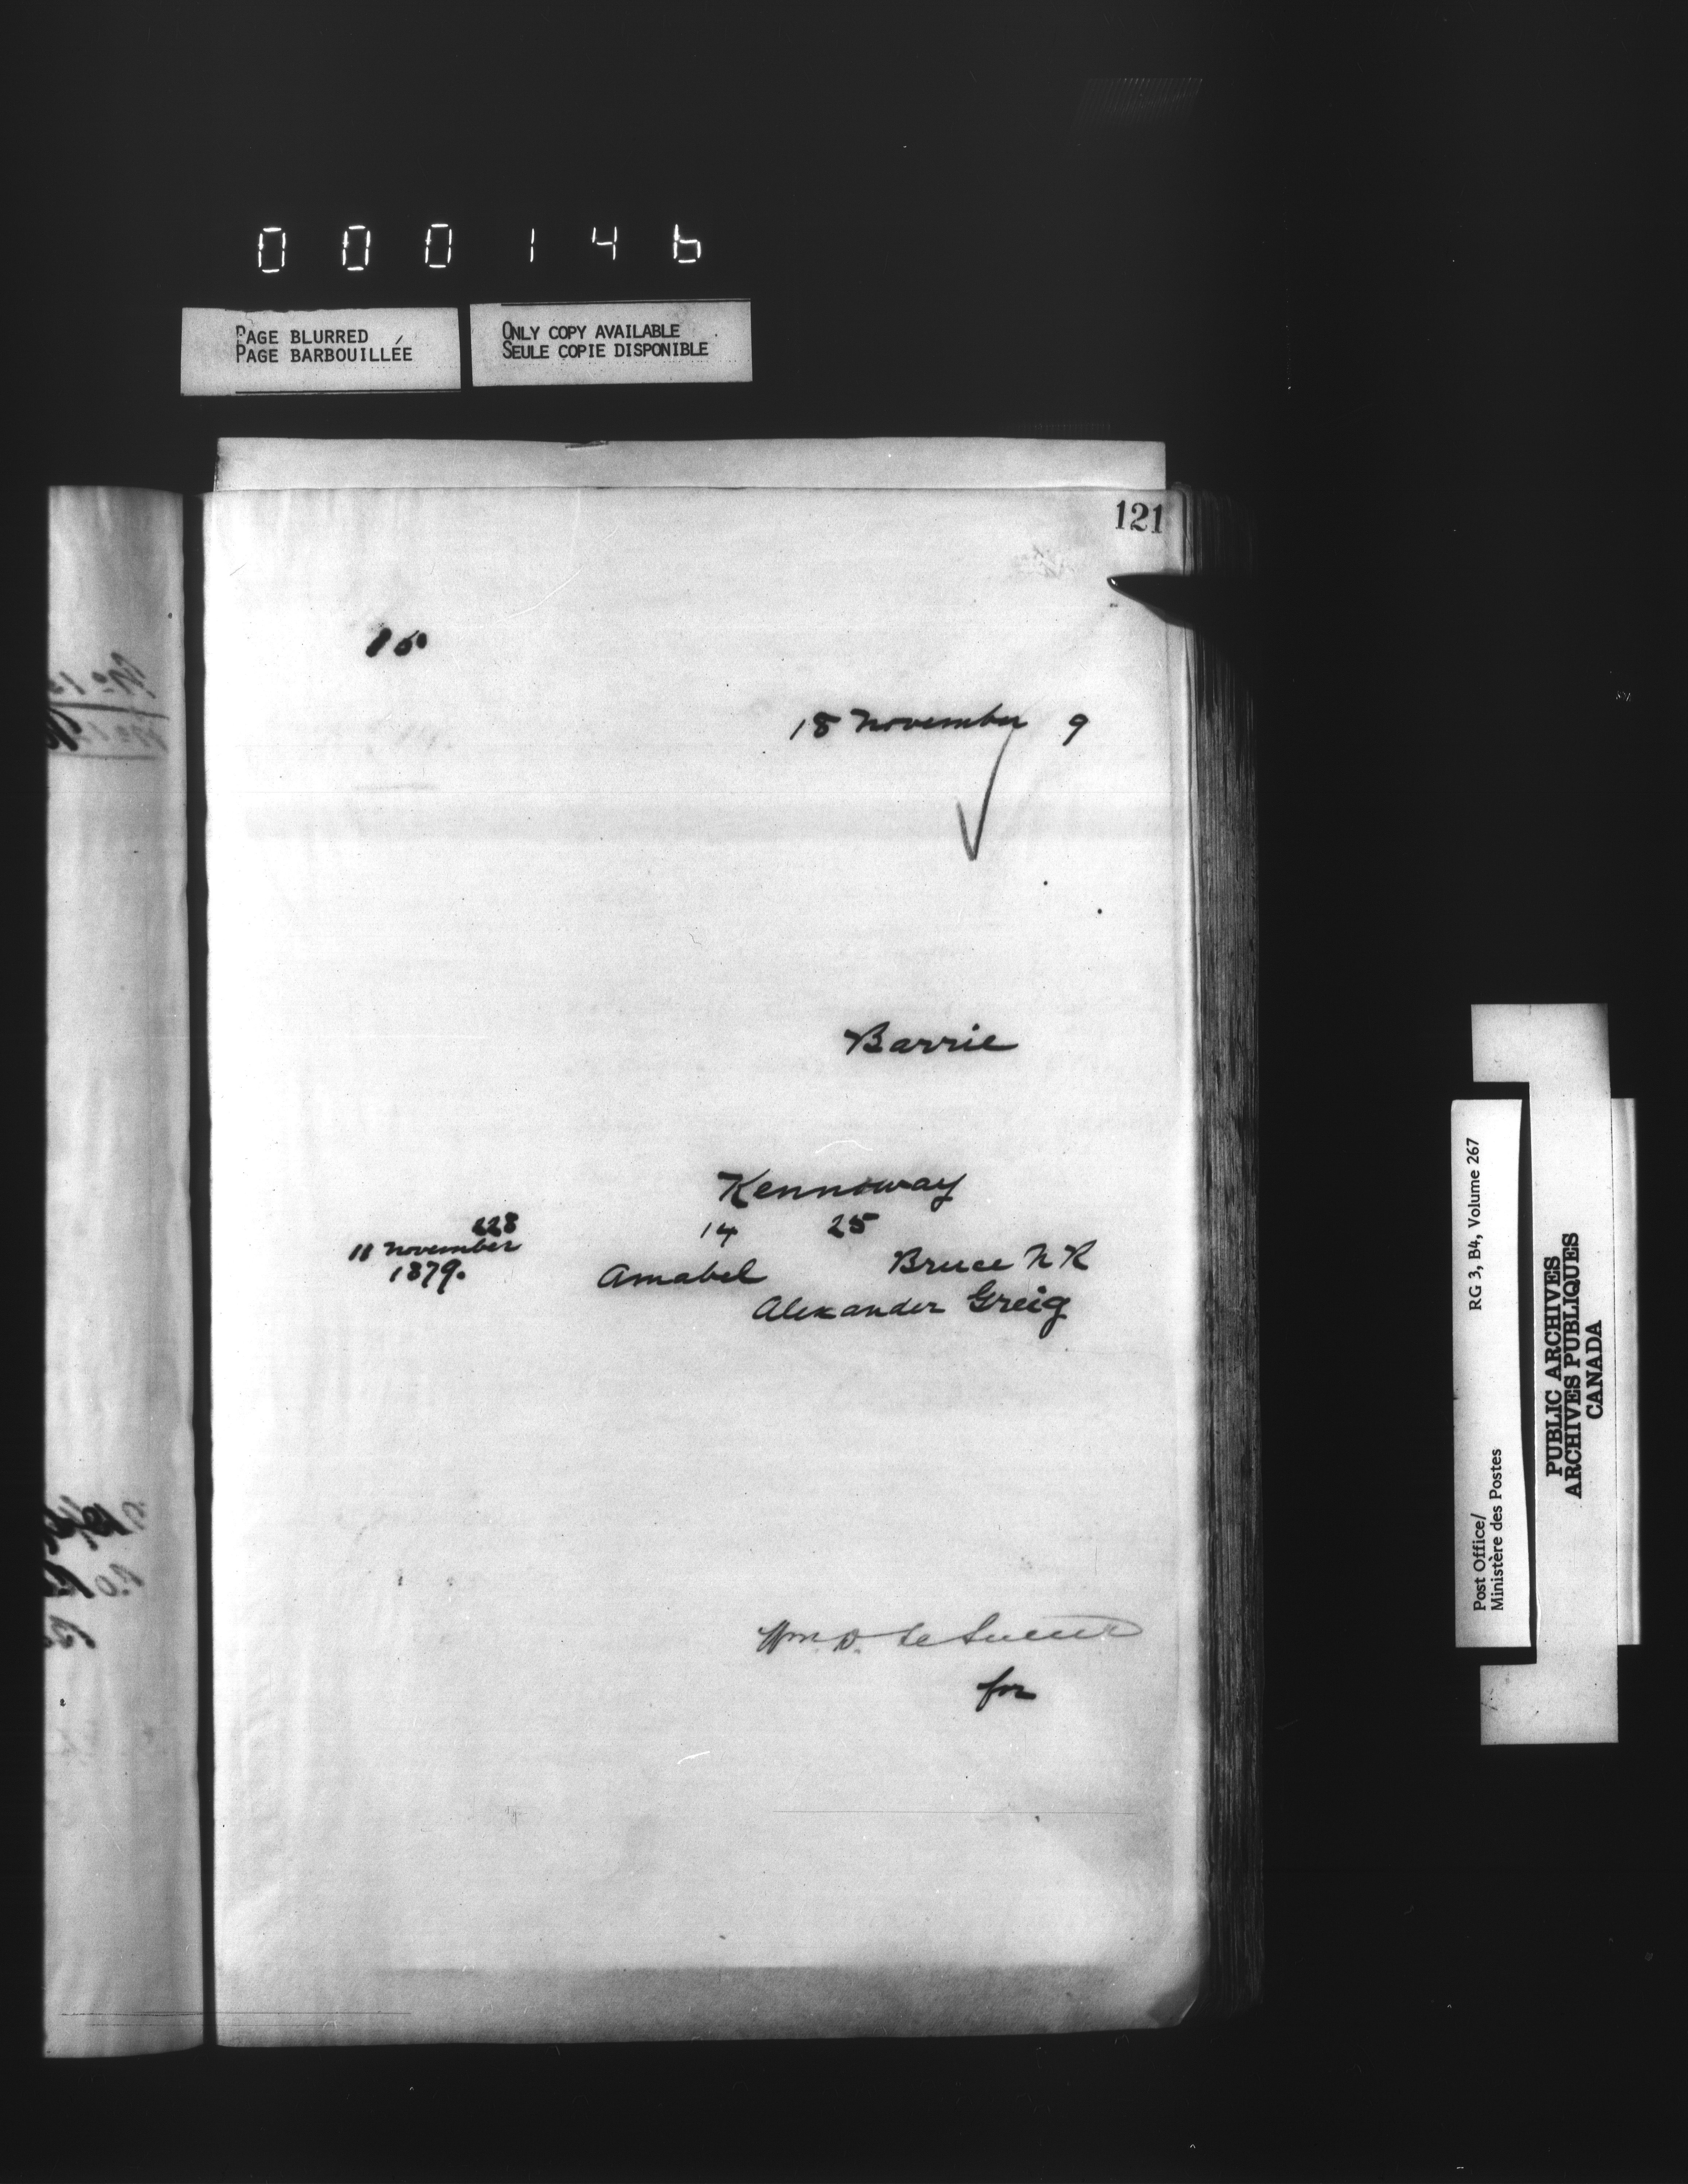 000146
PAGE BLURRED
PAGE BARBOUILLÉE
ONLY COPY AVAILABLE
SEULE COPIE DISPONIBLE
121
18 November 9
Barrie
Kennoway
228
14 25
11 November
1879.
Amabel
Bruce N R
Alexander Greig
Wm. D. Le Sueur
for
RG 3, B4, Volume 267
Post Office/
Ministère des Postes
PUBLIC ARCHIVES
ARCHIVES PUBLIQUES
CANADA